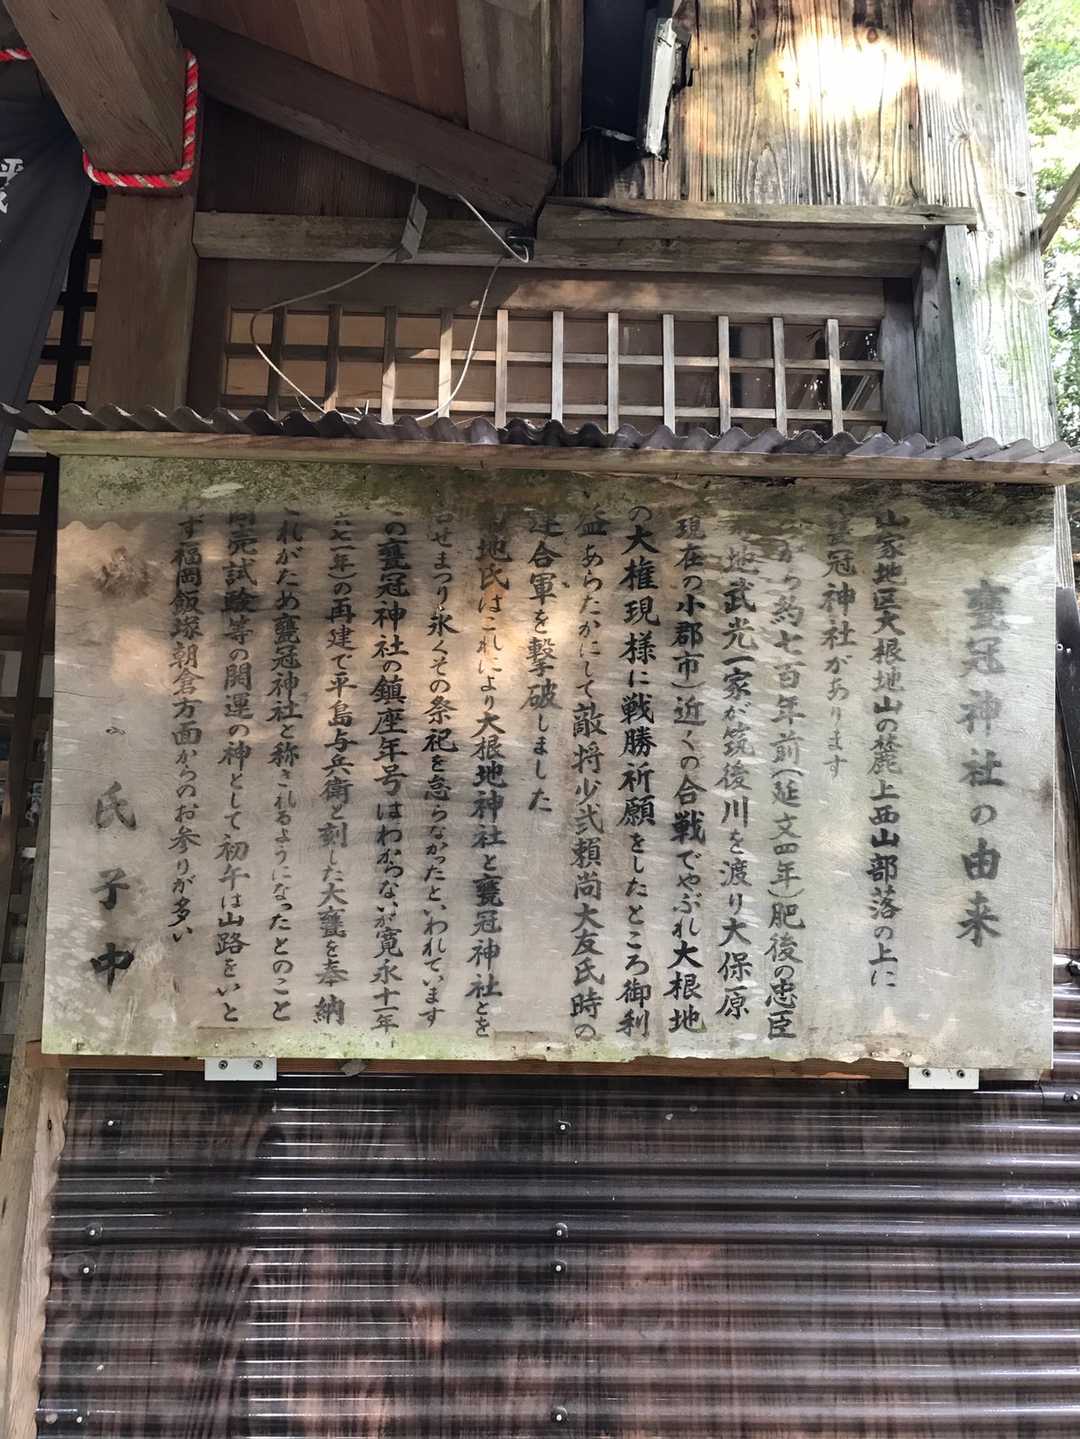 甕冠神社の由来
山家地区大根地山の麓上西山部落の上に
甕冠神社があります
から約七百年前(延文四年)肥後の忠臣
地武光一家が筑後川を渡り大保原
現在の小郡市)近くの合戦でやぶれ大根地
の大権現様に戦勝祈願をしたところ御利
益あらたかにして敵将少弐頼尚大友氏時の
連合軍を撃破しました
地氏はこれにより大根地神社と甕冠神社とを
せまつり永くその祭祀を怠らなかったといわれています
の甕冠神社の鎮座年号はわからないが寛永十一年
六七一年)の再建で平島与兵衛と刻した大甕を奉納
これがため甕冠神社と称されるようになったとのこと
商売試験等の開運の神として初午は山路をいと
わず福岡飯塚朝倉方面からのお参りが多い
氏子中